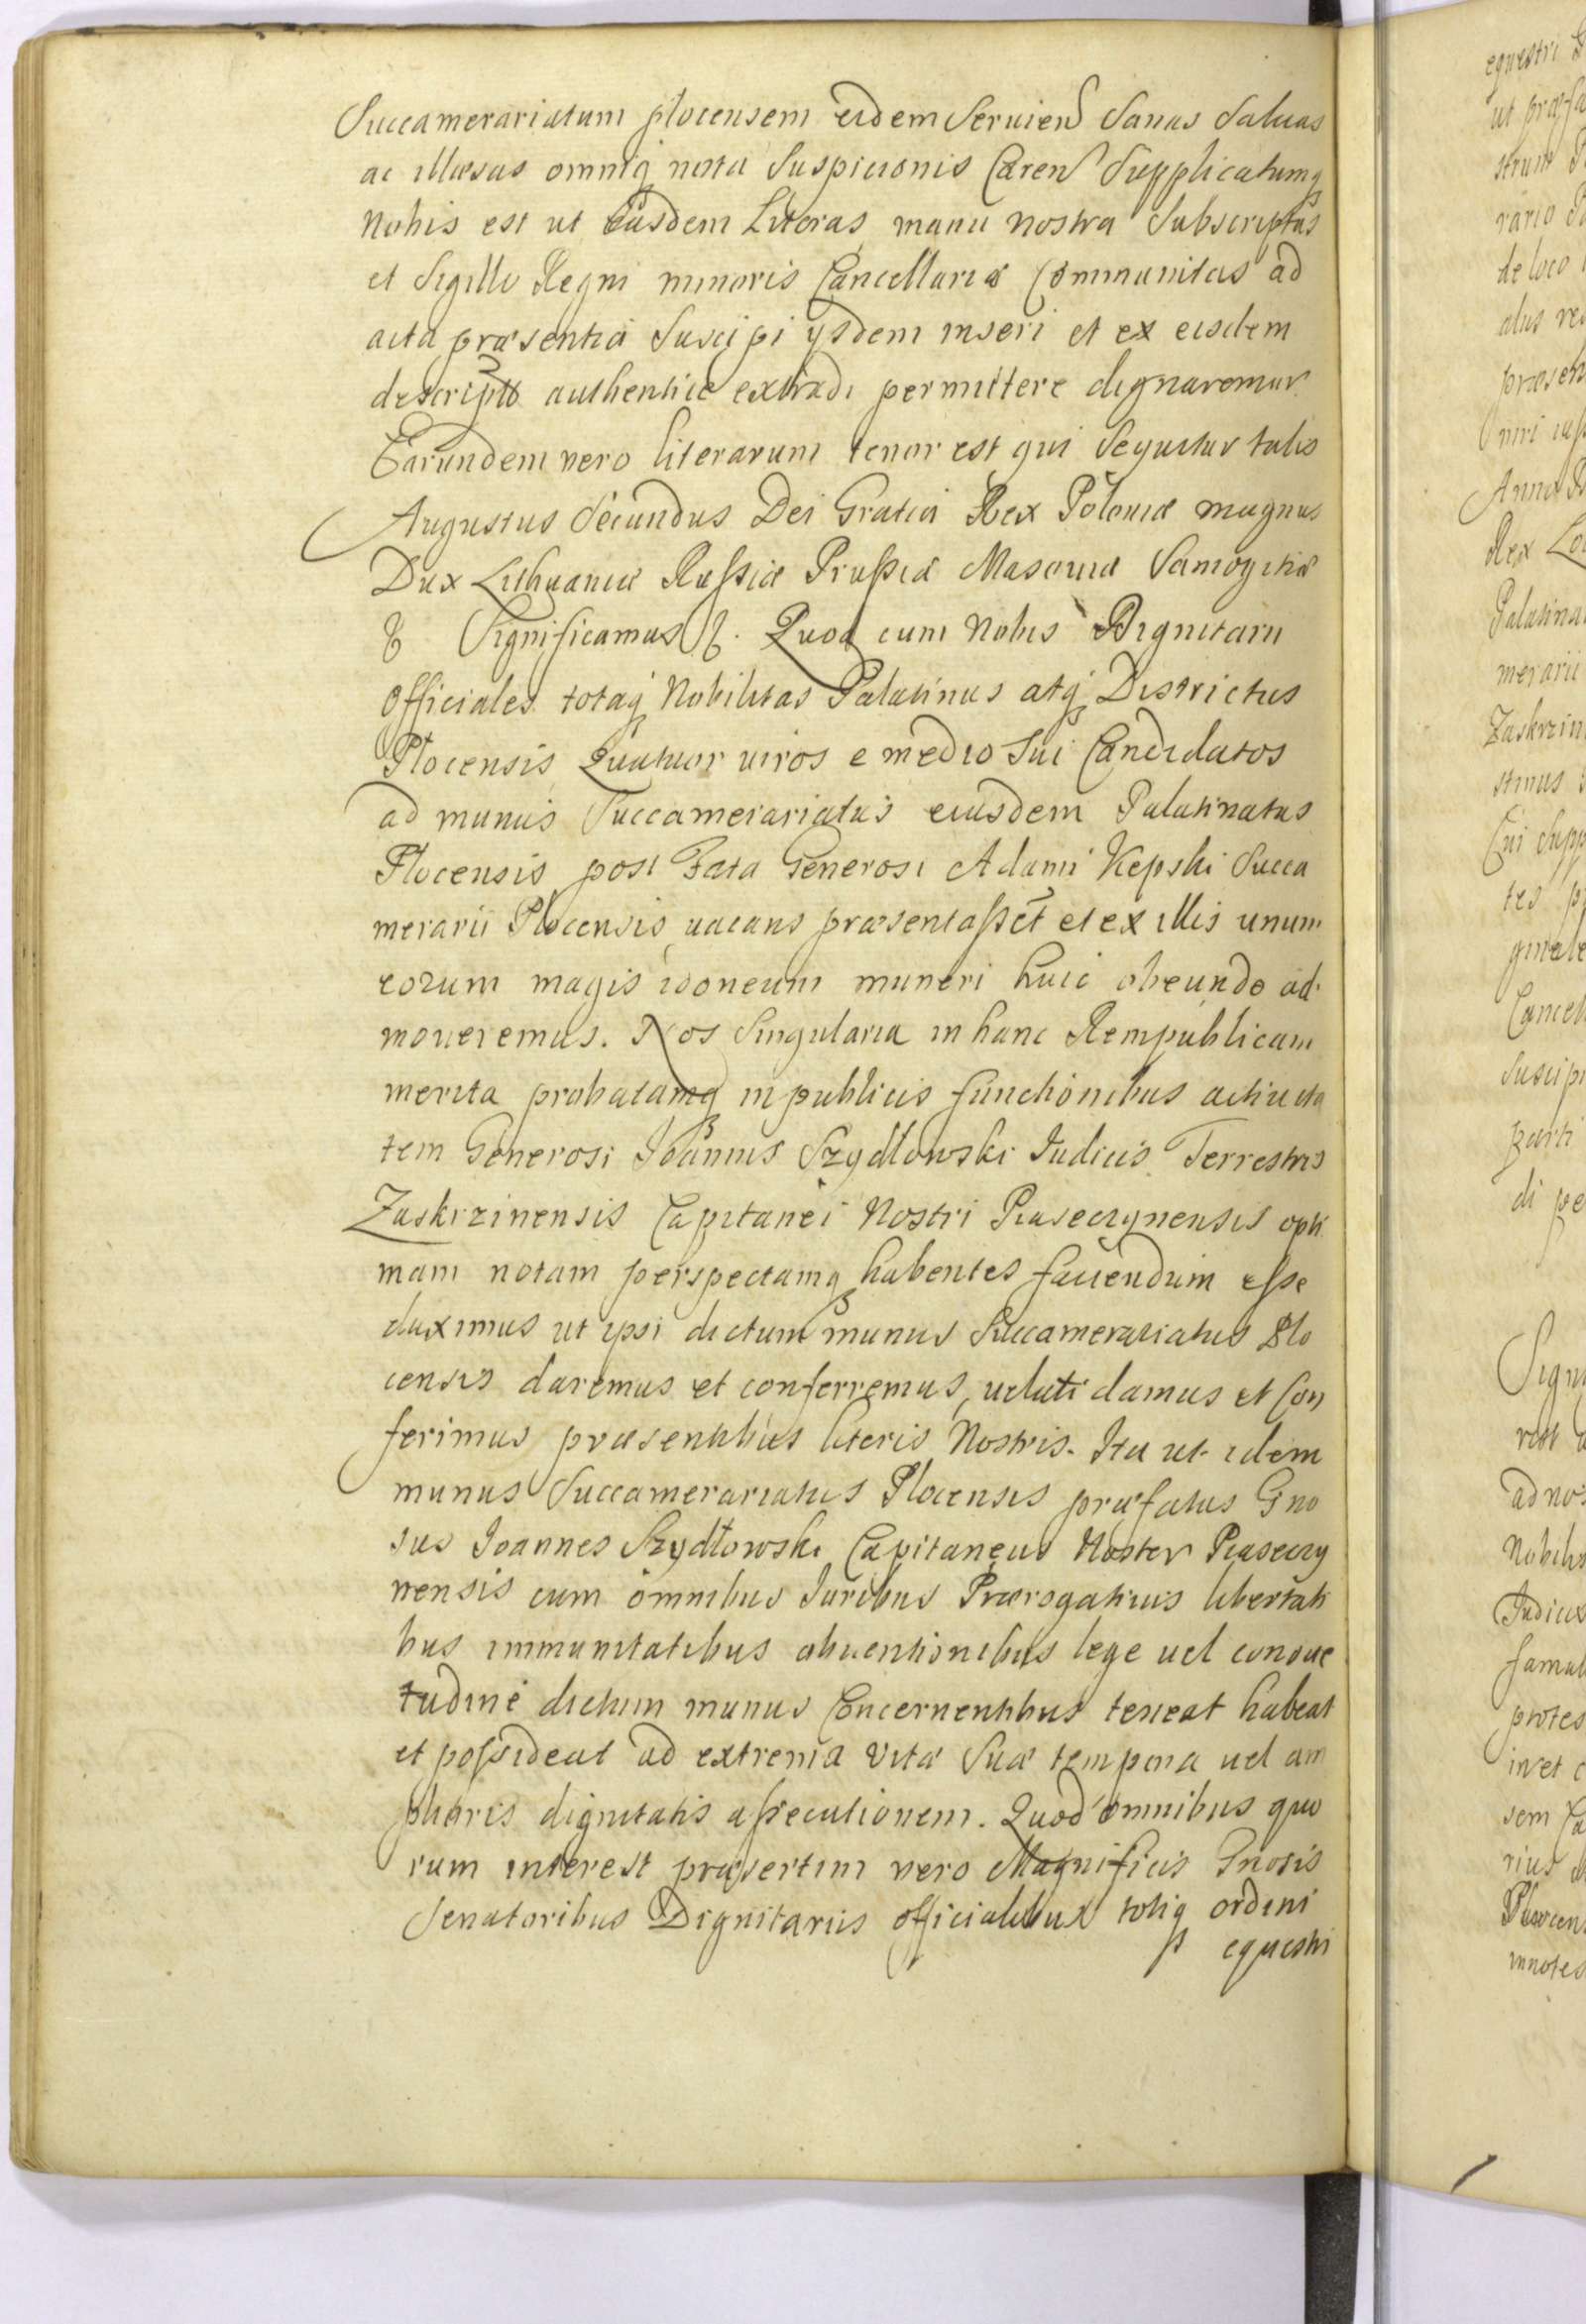 Succamerariatum plocensem eidem Servien Sanas Salvas
ac illæsas omniq nota Suspicionis Caren Supplicatumq
Nobis est ut Easdem Literas manu nostra Subscriptas
et Sigillo Regni minoris Cancellariæ Communitas ad
acta præsentia Suscipi ysdem inseri et ex eisdem
descripto authentice extradi permittere dignaremur
Earundem vero literarum tenor est qui Sequitur talis
Augustus Secundus Dei Gratia Rex Poloniæ magnus
Dux Lithuaniæ Russiæ Prussiæ Masoviæ Samogitiæ
& Significamus &. Quod cum Nobis Dignitarii
Officiales totaq Nobilitas Palatinus atq Districtus
Plocensis Quatuor viros e medio Sui Candidatos
ad munus Succamerariatus eiusdem Palatinatus
Plocensis post Fata Generosi Adami Kępski Succa
merarii Plocensis vacans præsentasset et ex illis unum
eorum magis idoneum muneri huic obeundo ad
moveremus. Nos Singularia in hanc Rempublicam
merita probatamq in publicis functionibus activita
tem Generosi Joannis Szydłowski Iudicis Terrestris
Zaskrzinensis Capitanei Nostri Piasecznensis opti
mam notam perspectamq habentes faciendum esse
duximus ut ipsi dictum munus Succamerariatus Plo
censis daremus et conferremus, veluti damus et Con
ferimus præsentibus literis Nostris. Ita ut idem
munus Succamerariatus Plocensis præfatus Gno
sus Joannes Szydłowski Capitaneus Noster Piaseczy
nensis cum omnibus Iuribus Prærogativis libertati
bus immunitatibus obventionibus lege vel consue
tudine dictum munus Concernentibus teneat habeat
et possideat ad extrema vitæ Suæ tempora vel am
plioris dignitatis assecutionem. Quod omnibus quo
rum interest præsertim vero Magnificis Gnosis
Senatoribus Dignitariis officialibus totiq ordini
equestri